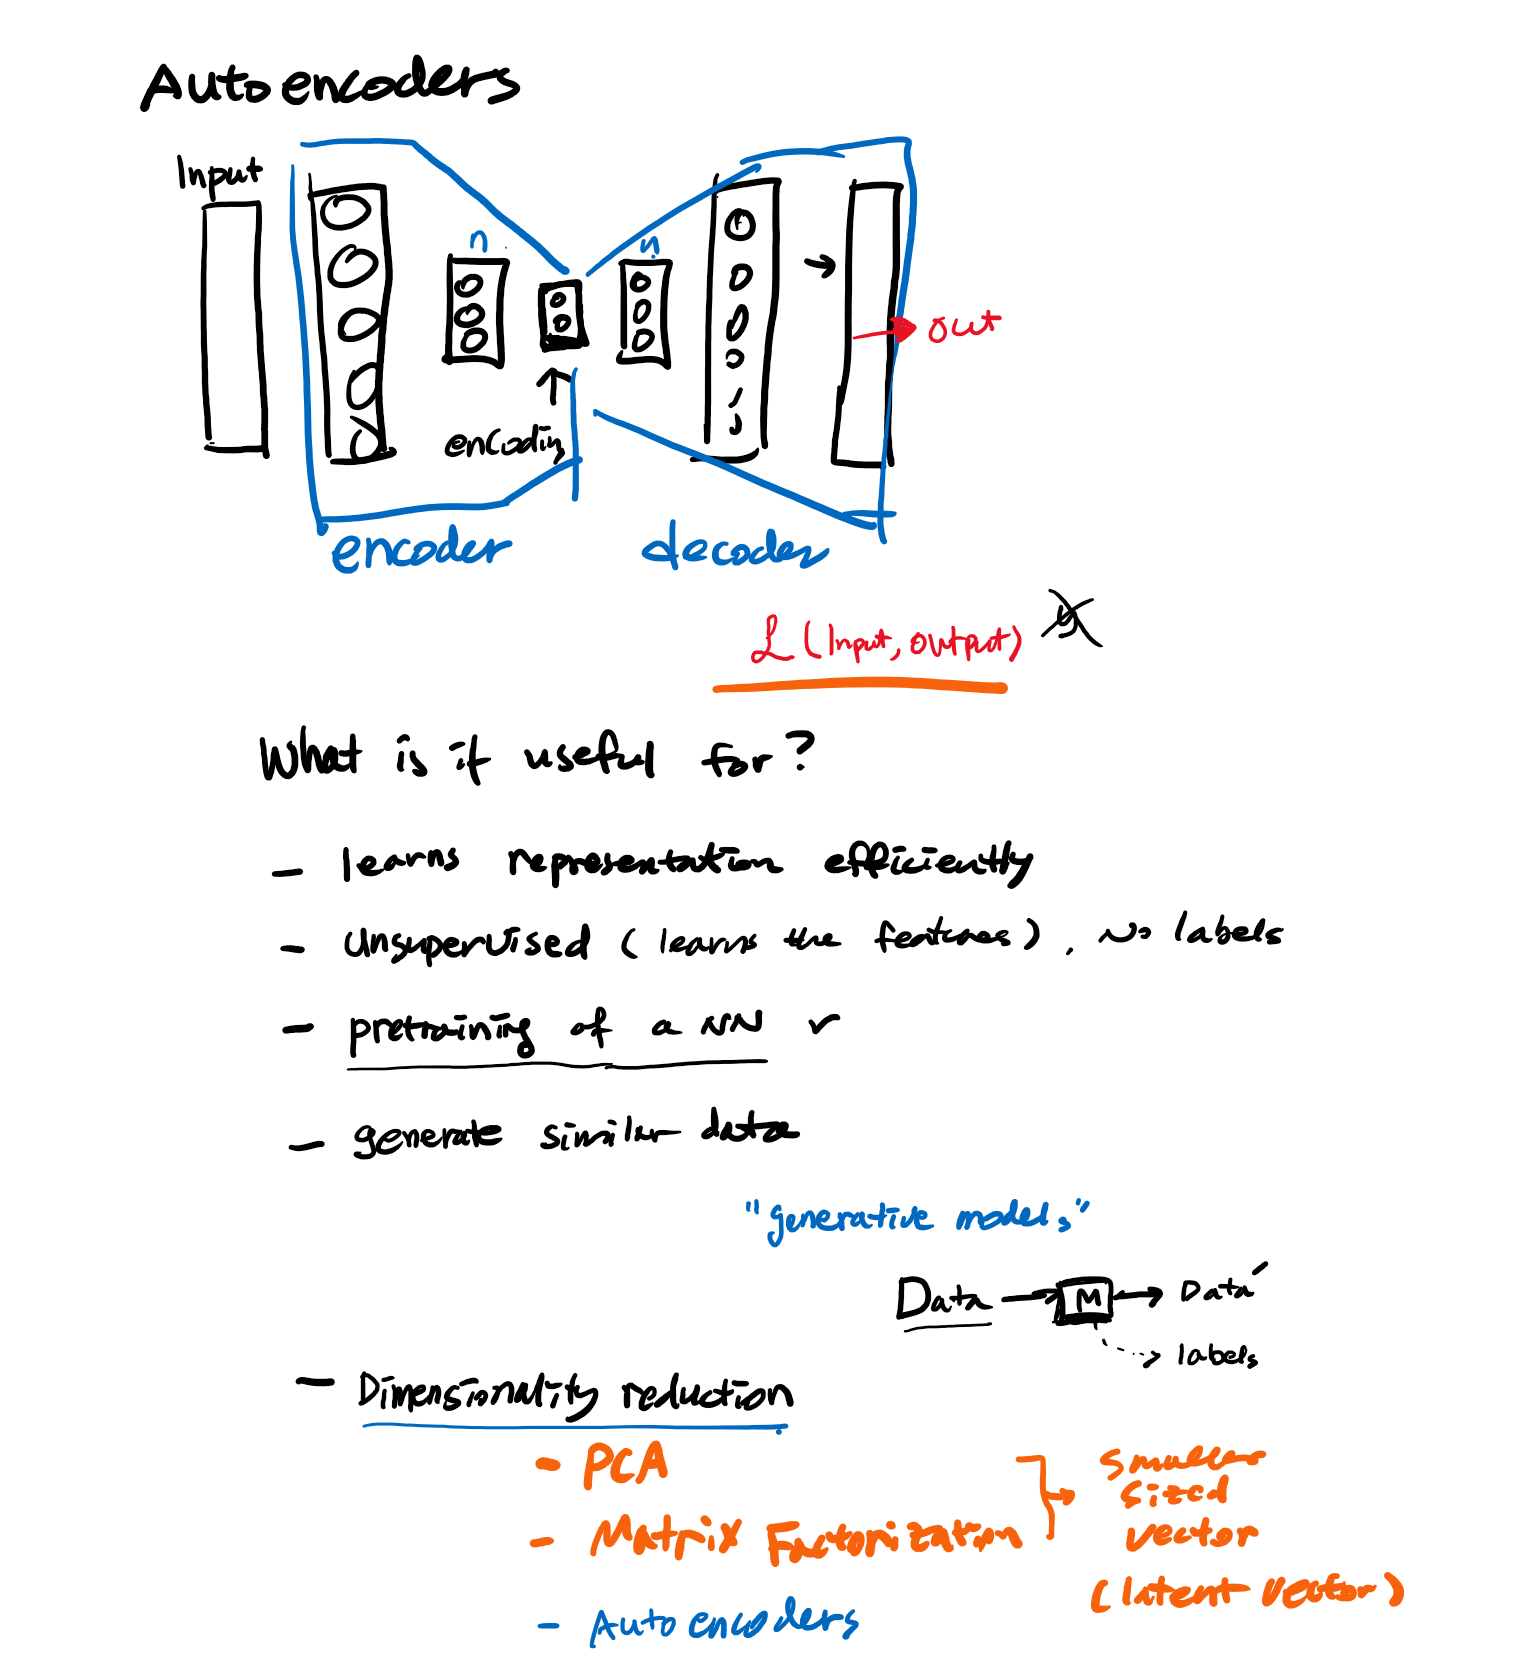 Autoencoders
Input
n
n
out
encoding
encoder
decoder
L (Input, output) y
What is it useful for?
- learns representation efficiently
- Unsupervised (learns the features), No labels
- pretraining of a NN ✓
- generate similar data
"generative models"
Data → M → Data'
labels
- Dimensionality reduction
- PCA
- Matrix Factorization
smaller
sized
vector
(latent vector)
- Autoencoders